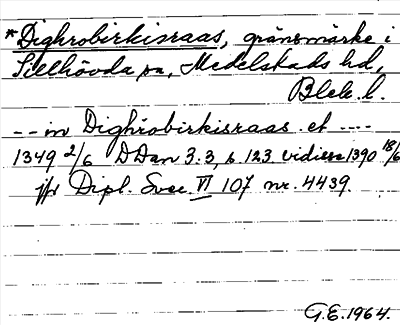 *Dighrobirkisraas, gränsmärke i
Sillhövda sn, Medelstads hd,
Blek. l.
-- in Dighrobirkisraas et ----
1349 2/6 DDan 3.3, s 123 vidisse 1390 18/6
jfr Dipl. Svec. VI 107 nr. 4439
G.E. 1964.